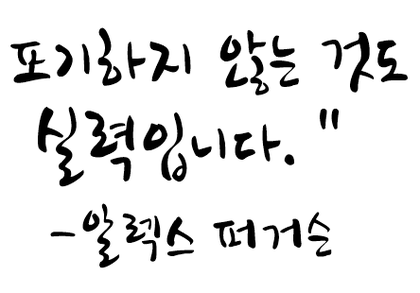 포기하지 않는 것도
실력입니다."
-알렉스 퍼거슨